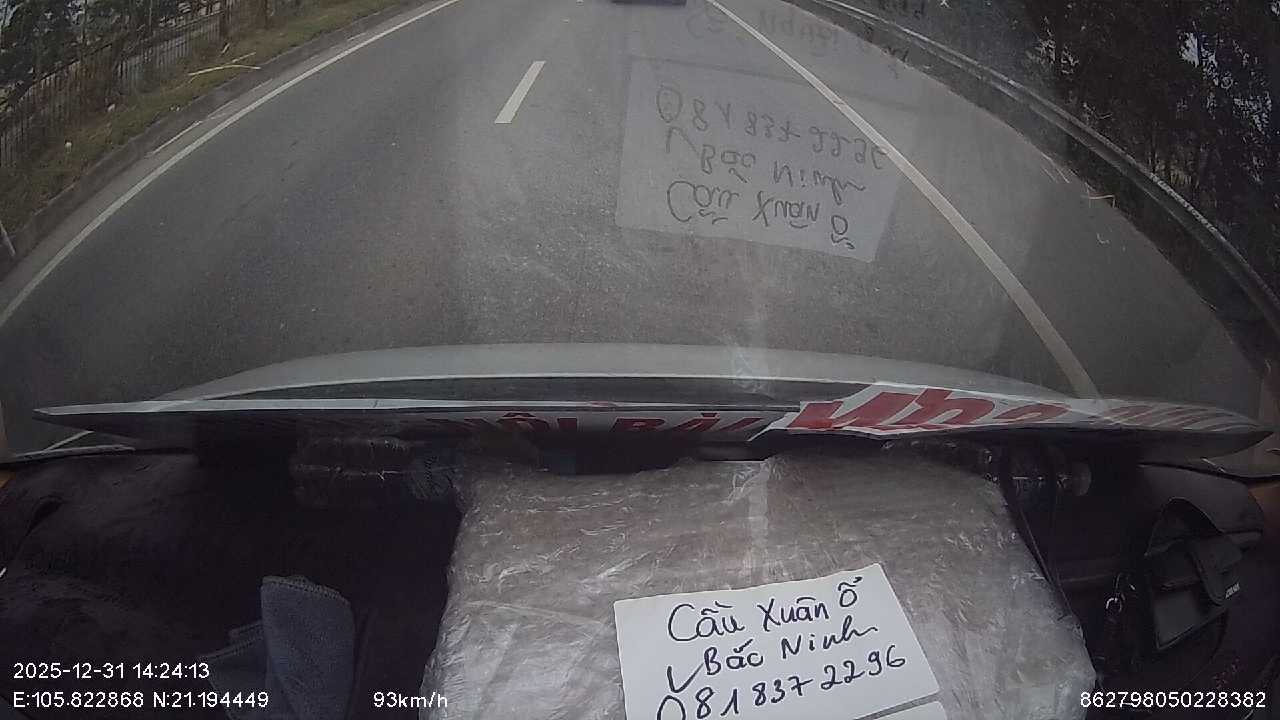 NỘI BÀI
Cầu Xuân Ổ
Bắc Ninh
081 837 2296
2025-12-31 14:24:13
E:105.822868 N:21.194449
93km/h
862798050228382